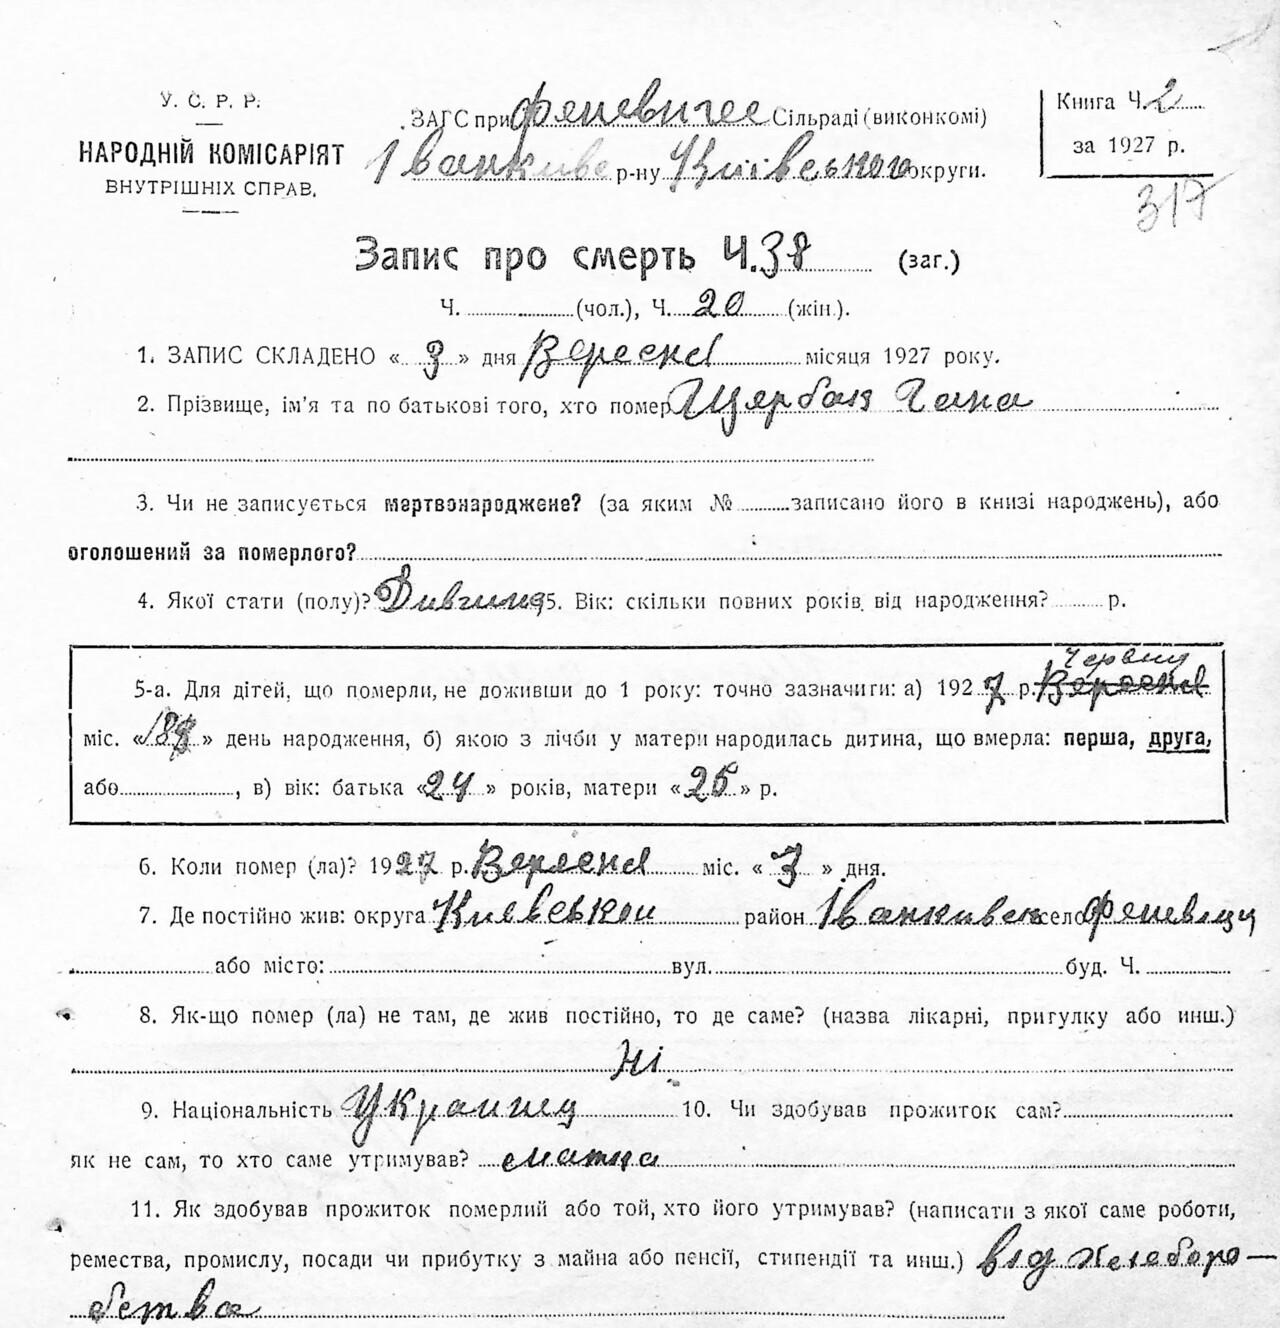 У. С. Р. Р.
НАРОДНІЙ КОМІСАРІЯТ
ВНУТРІШНІХ СПРАВ.
ЗАГС при Феневичес Сільраді (виконкомі)
Іванкивс р-ну Київського округи.
Книга Ч. 2
за 1927 р.
317
Запис про смерть Ч. 38 (заг.)
Ч. (чол.), Ч. 20 (жін.).
1. ЗАПИС СКЛАДЕНО « 3 » дня Вересня місяця 1927 року.
2. Прізвище, ім'я та по батькові того, хто помер Щербак Гана
3. Чи не записується мертвонароджене? (за яким № записано його в книзі народжень), або
оголошений за померлого?
4. Якої стати (полу)? Дивчина 5. Вік: скільки повних років від народження? р.
Червня
5-а. Для дітей, що померли, не доживши до 1 року: точно зазначити: а) 1927 р. Вересня
міс. « » день народження, б) якою з лічби у матери народилась дитина, що вмерла: перша, друга,
або , в) вік: батька «24» років, матери «25» р.
6. Коли помер (ла)? 1927 р. Вересня міс. « 3 » дня.
7. Де постійно жив: округа Киевськои район Іванкивск село Феневичи
або місто: вул. буд. Ч.
8. Як-що помер (ла) не там, де жив постійно, то де саме? (назва лікарні, пригулку або инш.)
Ні
9. Національність Украинец 10. Чи здобував прожиток сам?
як не сам, то хто саме утримував? матка
11. Як здобував прожиток померлий або той, хто його утримував? (написати з якої саме роботи,
ремества, промислу, посади чи прибутку з майна або пенсії, стипендії та инш.) від хлеборо-
бства